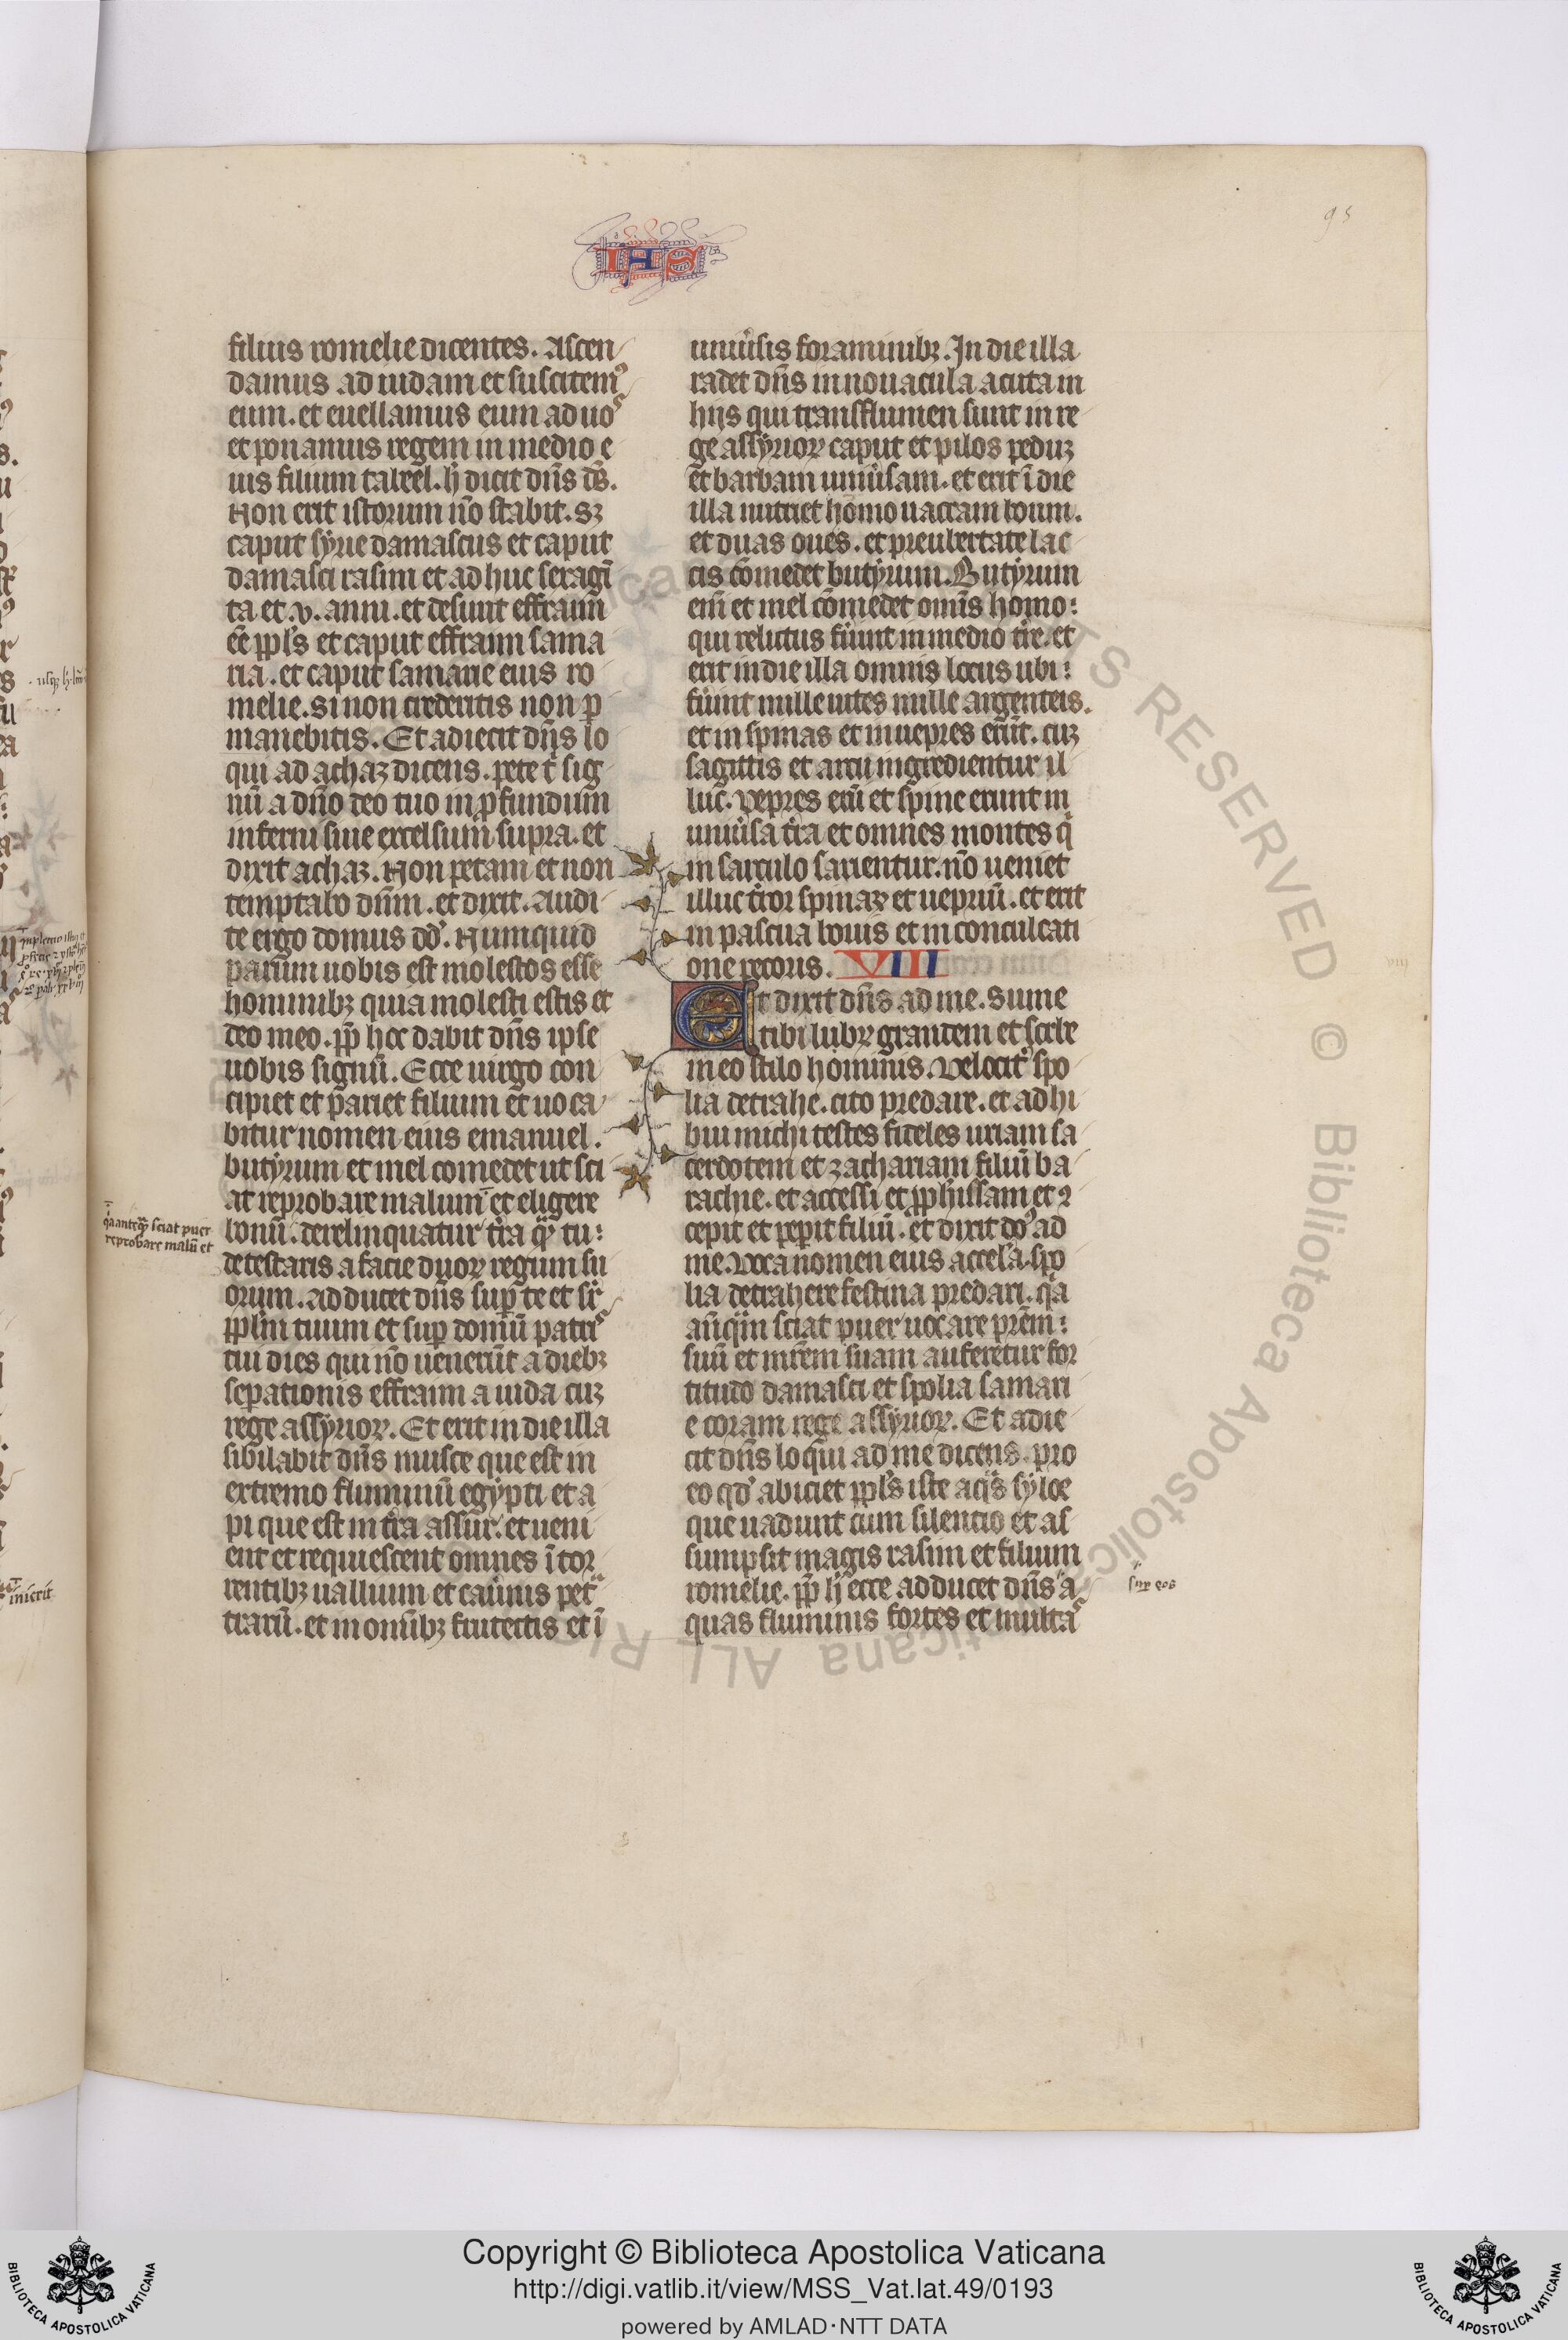 95
IHS
filius romelie dicentes. Ascen
damus ad iudam et suscitem⁹
eum. et euellamus eum ad nos
et ponamus regem in medio e
ius filium tabeel. h̄ dicit dn̄s ds̄.
Non erit istorum nō stabit. sꝫ
caput syrie damascus et caput
damasci rasim et ad huc seragī
ta et .v. anni. et desunt effraim
eē pp̄ls et caput effraim sama
ria. et caput samarie eius ro
melie. si non credetitis non ꝑ
manebitis. Et adiecit dn̄s lo
qui ad achaz dicens. pete t̄ sig
nū a dn̄o deo tuo in ꝓfundum
inferni siue excelsum supra. et
dixit achaz. Non petam et non
temptabo dn̄m. et dixit. Audi
te ergo domus dd̄. Numquid
parum uobis est molestos esse
hominibꝫ quia molesti estis et
deo meo. pp̄ hoc dabit dn̄s ipse
uobis signū. Ecce uirgo con
cipiet et pariet filium et uoca
bitur nomen eius emanuel.
butyrum et mel comedet ut sci
at reprobare malum et eligere
bonū. derelinquatur tr̄a qͣꝫ tu:
detestaris a facie duoꝝ regum su
orum. adducet dn̄s suꝑ te et sr̄
pp̄lm tuum et suꝑ domū patris
tui dies qui nō uenerūt a diebꝫ
seꝑationis effraim a iuda cuꝫ
rege assyrioꝝ. Et erit in die illa
sibilabit dn̄s musce que est in
extremo fluminū egypti et a
pi que est in tr̄a assur. et ueni
ent et requiescent omnes ī tor
rentibꝫ uallium et cau̾nis pet̾
trarū. et in om̄ibꝫ frutectis et ī
uniu̾sis foraminibꝫ. In die illa
radet dn̄s in nouacula acuta in
hijs qui transflumen sunt in re
ge assyrioꝝ caput et pilos peduꝫ
et barbam uniu̾sam. et erit ī die
illa nutriet homo uaccam boum.
et duas oues. et pre ubertate lac
tis cōmedet butyrum. Butyrum
em̄ et mel cōmedet omīs homo:
qui relictus fu̾int in medio tr̄e. et
erit in die illa omnis locus ubi:
fu̾int mille uites mille argenteis.
et in spinas et in uepres erūt. cuꝫ
sagittis et arcu ingredientur il
luc. Vepres em̄ et spine erunt in
uniu̾sa tr̄a et omnes montes q̄
in sarculo sarientur. nō ueniet
illuc t̾ror spinaꝝ et ueprium. et erit
in pascua bouis et in conculcati
one pecoris. VIII
Et dixit dn̄s ad me. Sume
tibi libꝝ grandem et scribe
in eo stilo hominis. Velocit̾ spo
lia detrahe. cito predare. et adhi
bui michi testes fideles uriam sa
cerdotem et zachariam filiū ba
rachie. et accessi et ꝓph̄issam et 9
cepit et peꝑit filiū. et dixit do⁹ ad
me. Voca nomen eius accela. spo
lia detrahere festina predari. qͣa
an̄qͣm sciat puer uocare pr̄em:
suū et mr̄em suam auferetur for
titudo damasci et spolia samari
e coram rege assyrioꝝ. Et adie
cit dn̄s loqui ad me dicens. pro
eo qd̾ abiciet pp̄ls iste aqͣs syloe
que uadunt cum silencio et as
sumpsit magis rasim et filium
romelie. pp̄ h̄ ecce adducet dn̄s a
quas fluminis fortes et multas
qͣa anteqͣꝫ sciat puer
reprobare malū et
suꝑ eos
Copyright © Biblioteca Apostolica Vaticana
http://digi.vatlib.it/view/MSS_Vat.lat.49/0193
powered by AMLAD·NTT DATA
BIBLIOTECA APOSTOLICA VATICANA
BIBLIOTECA APOSTOLICA VATICANA